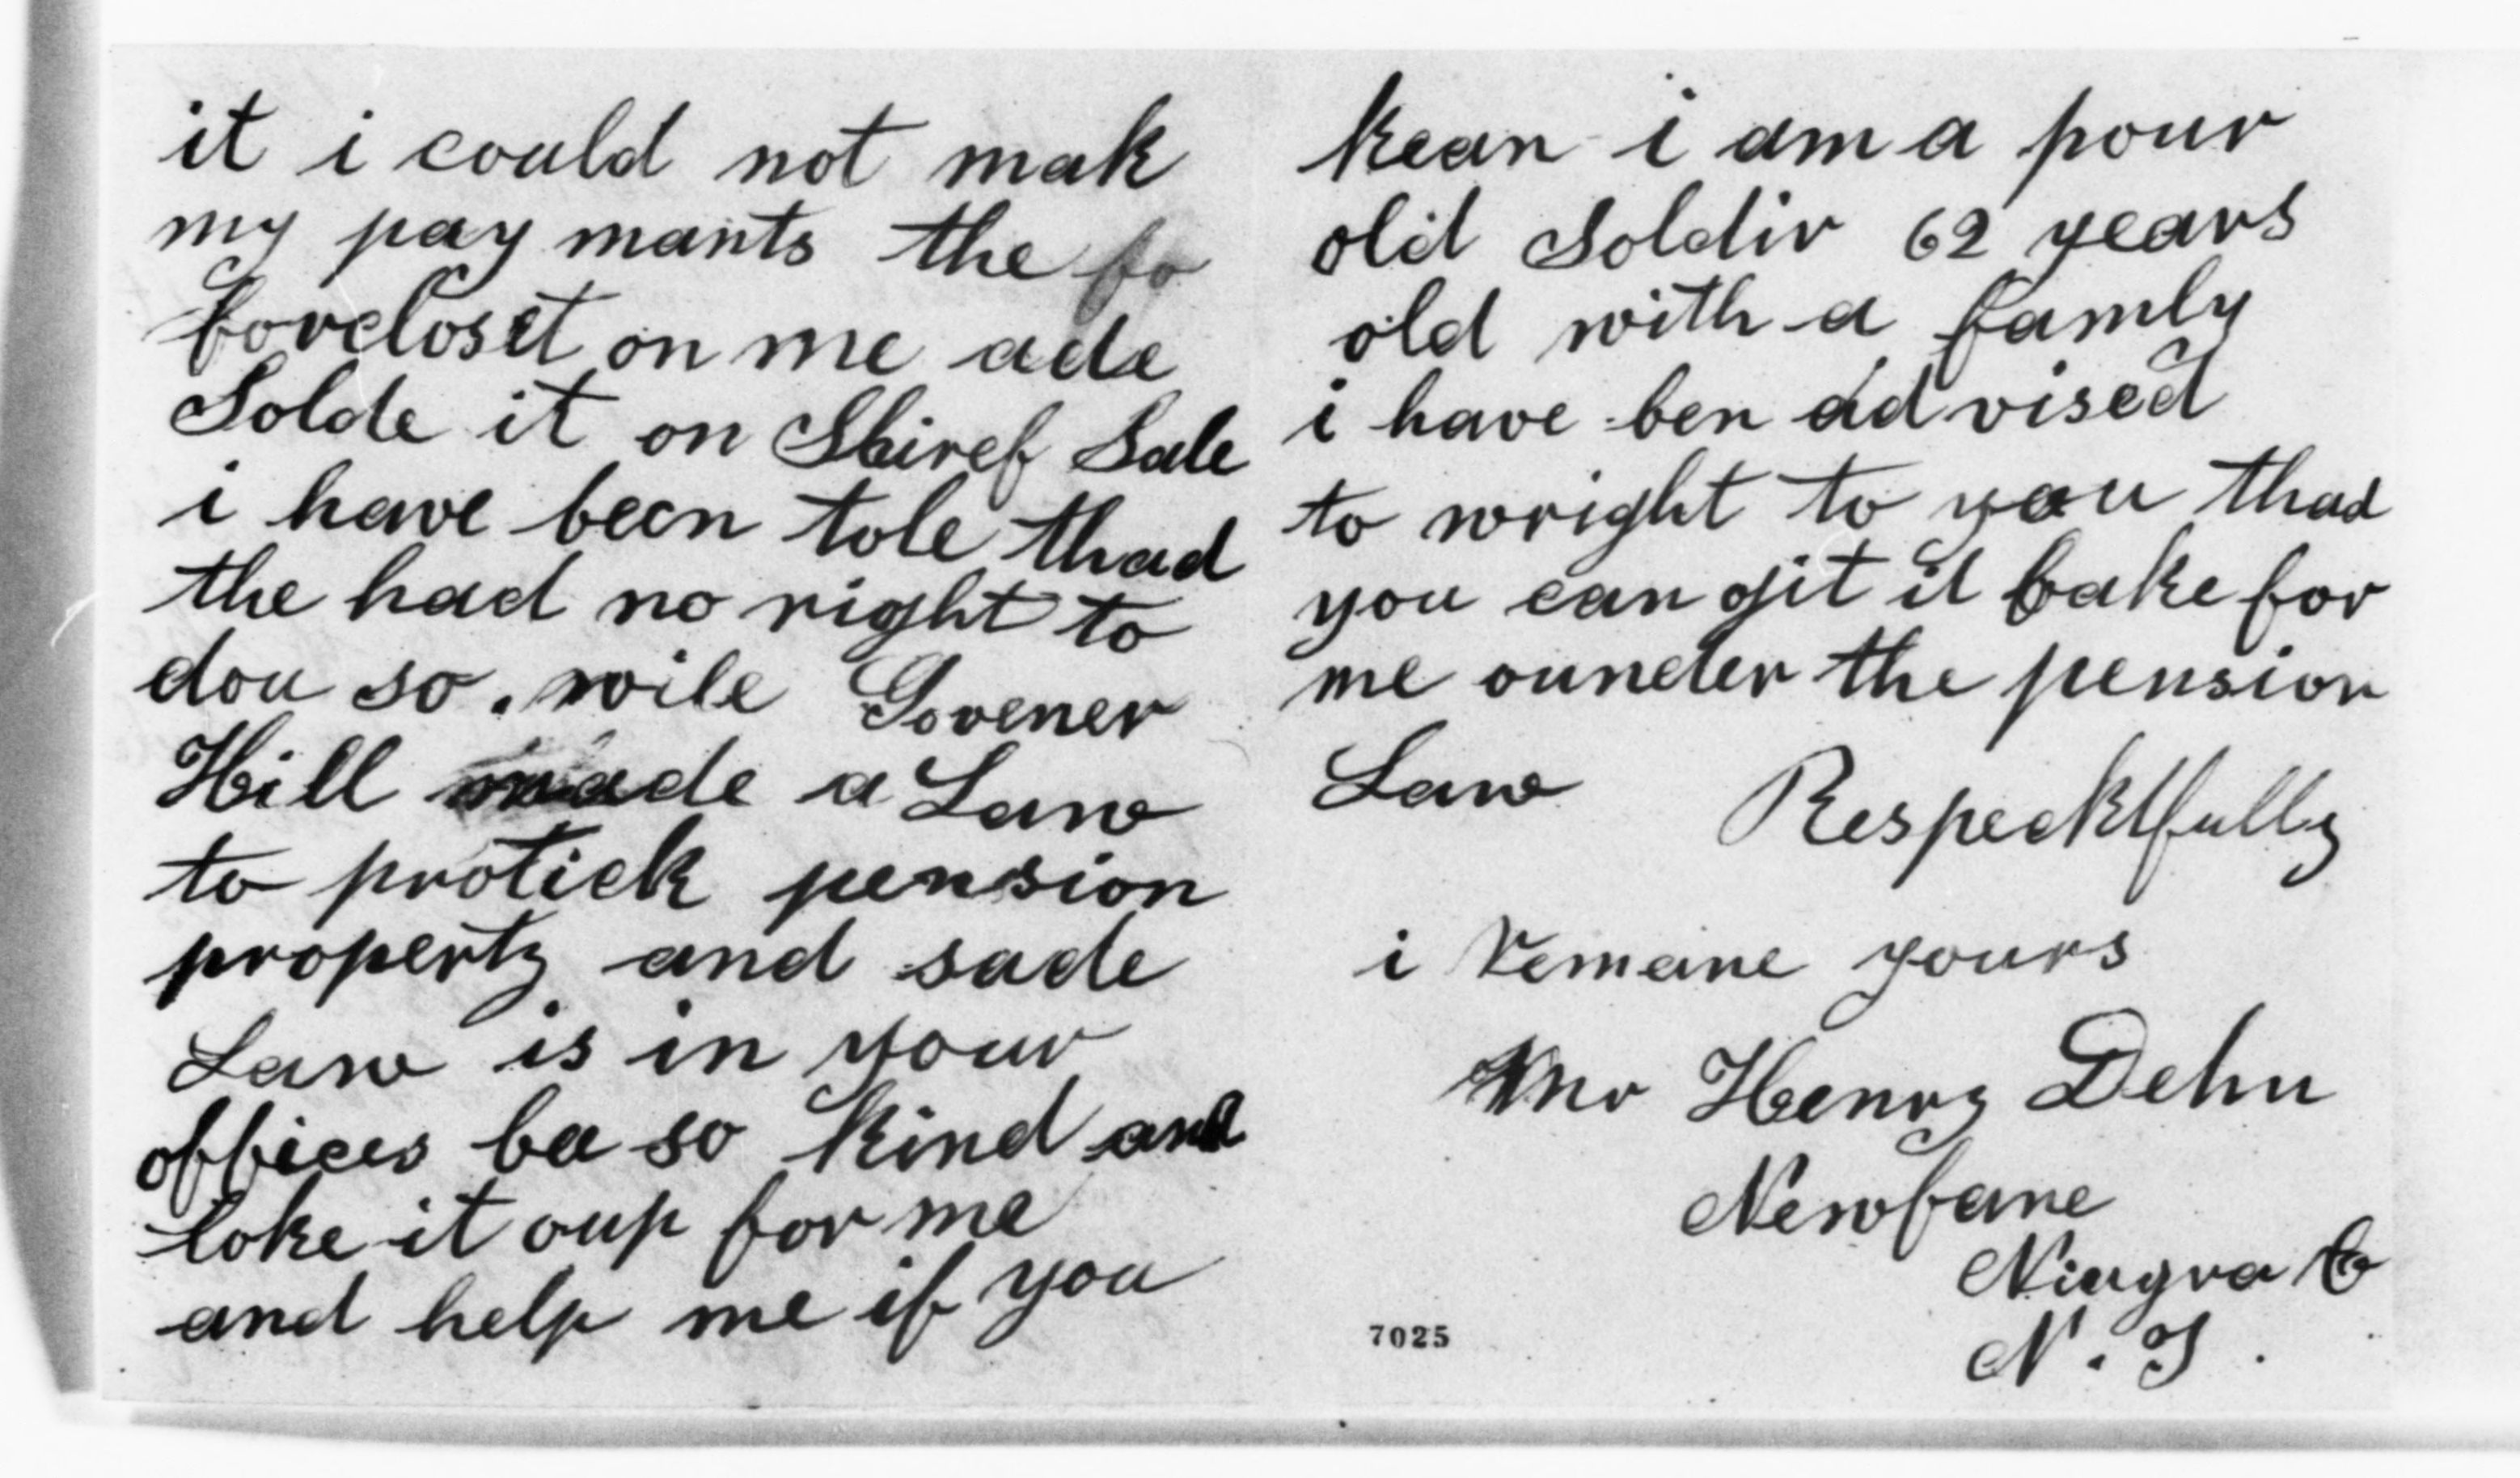 it i could not mak
my pay mants the fo
forecloset on me ade
Solde it on Shiref Sale
i have been tole thad
the had no right to
dou so. wile Govener
Hill made a Law
to protick pension
property and sade
Law is in your
offices be so kind and
loke it oup for me
and help me if you
kean i am a pour
old Soldir 62 years
old with a famly
i have ben advised
to wright to you thad
you can git it bake for
me ounder the pension
Law Respecktfully
i Remaine yours
Mr Henry Dehn
Newfane
Niagra Co
N. Y.
7025